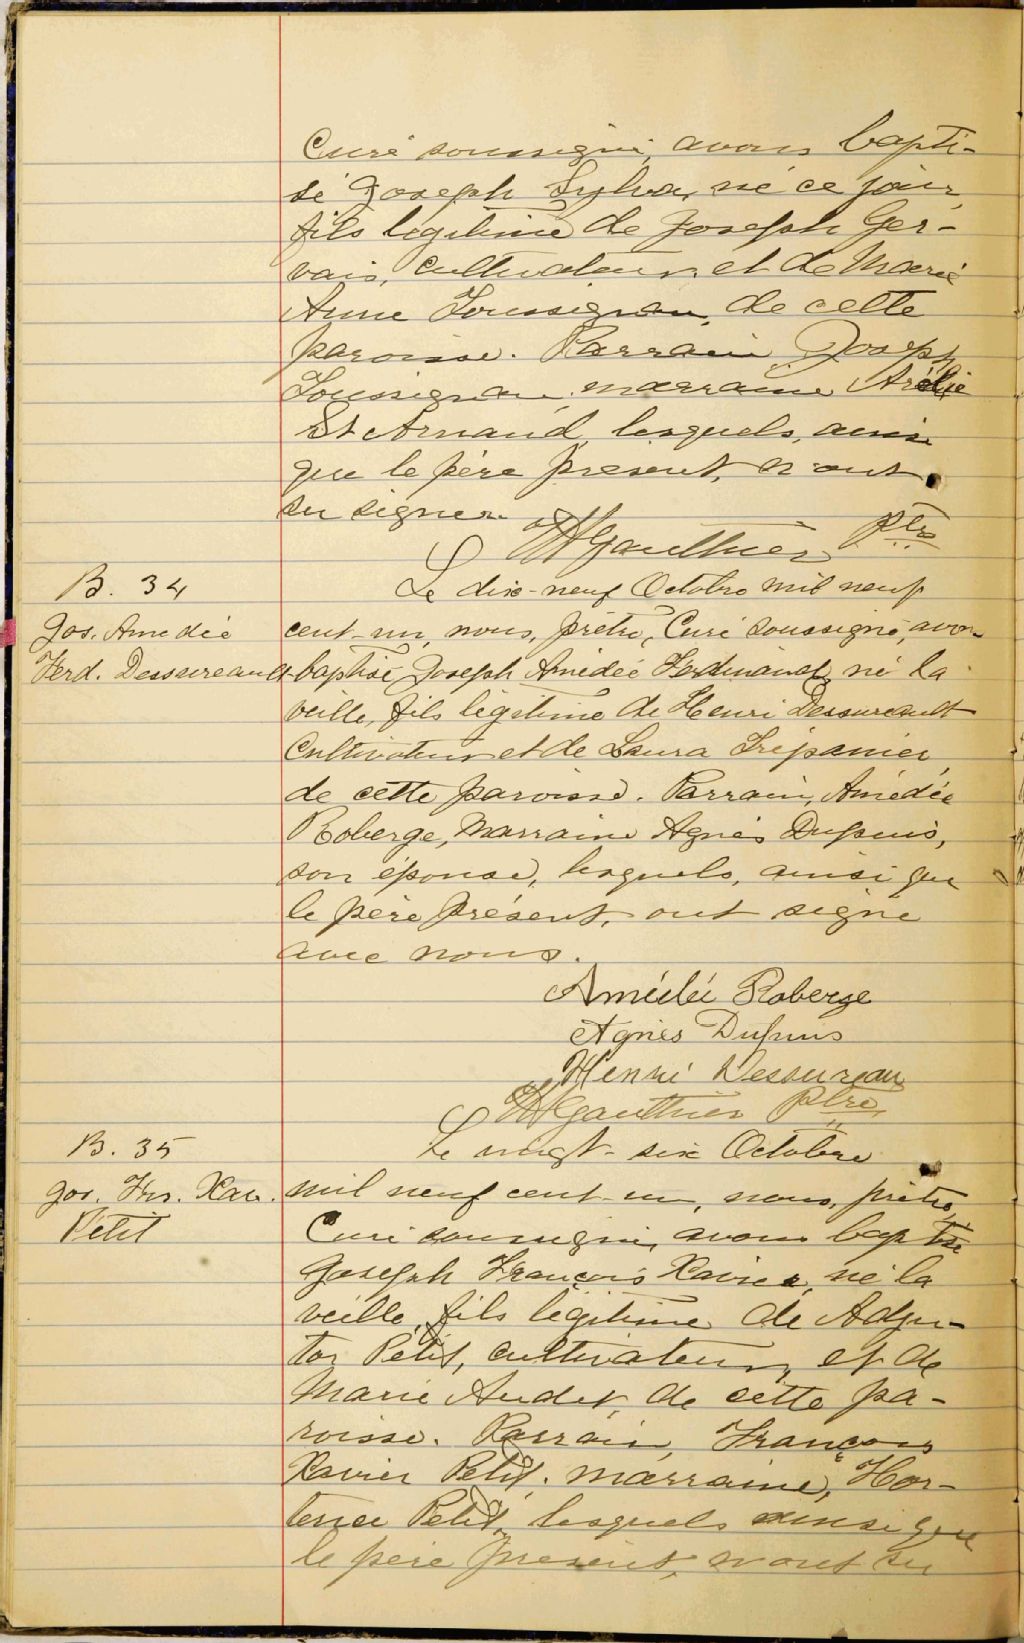 Curé soussigné, avons bapti-
sé Joseph Sylva, né ce jour,
fils légitime de Joseph Ger-
vais, cultivateur, et de Marie
Anne Toussignau, de cette
paroisse. Parrain Joseph
Toussignau, marraine
St Arnaud, lesquels, ainsi
que le père présent, n'ont
su signer.
Gauthier Ptre
B. 34
Le dix-neuf Octobre mil neuf
Jos. Amédée
cent-un, nous, prêtre, Curé soussigné, avons
Ferd. Dessureault
baptisé Joseph Amédée Ferdinand, né la
veille, fils légitime de Henri Dessureault
Cultivateur et de Laura Trépanier,
de cette paroisse. Parrain, Amédée
Roberge, Marraine Agnès Dupuis,
son épouse, lesquels, ainsi que
le père présent, ont signé
avec nous.
Amédée Roberge
Agnès Dupuis
Henri Dessureau
Gauthier Ptre,
B. 35
Le vingt-six Octobre
Jos. Frs. Xav.
mil neuf cent-un, nous, prêtre,
Petit
Curé soussigné, avons baptisé
Joseph François Xavier, né la
veille, fils légitime de Adju-
tor Petit, cultivateur, et de
Marie Audet, de cette pa-
roisse. Parrain, François
Xavier Petit, marraine, Hor-
tense Petit, lesquels ainsi que
le père présent, n'ont su